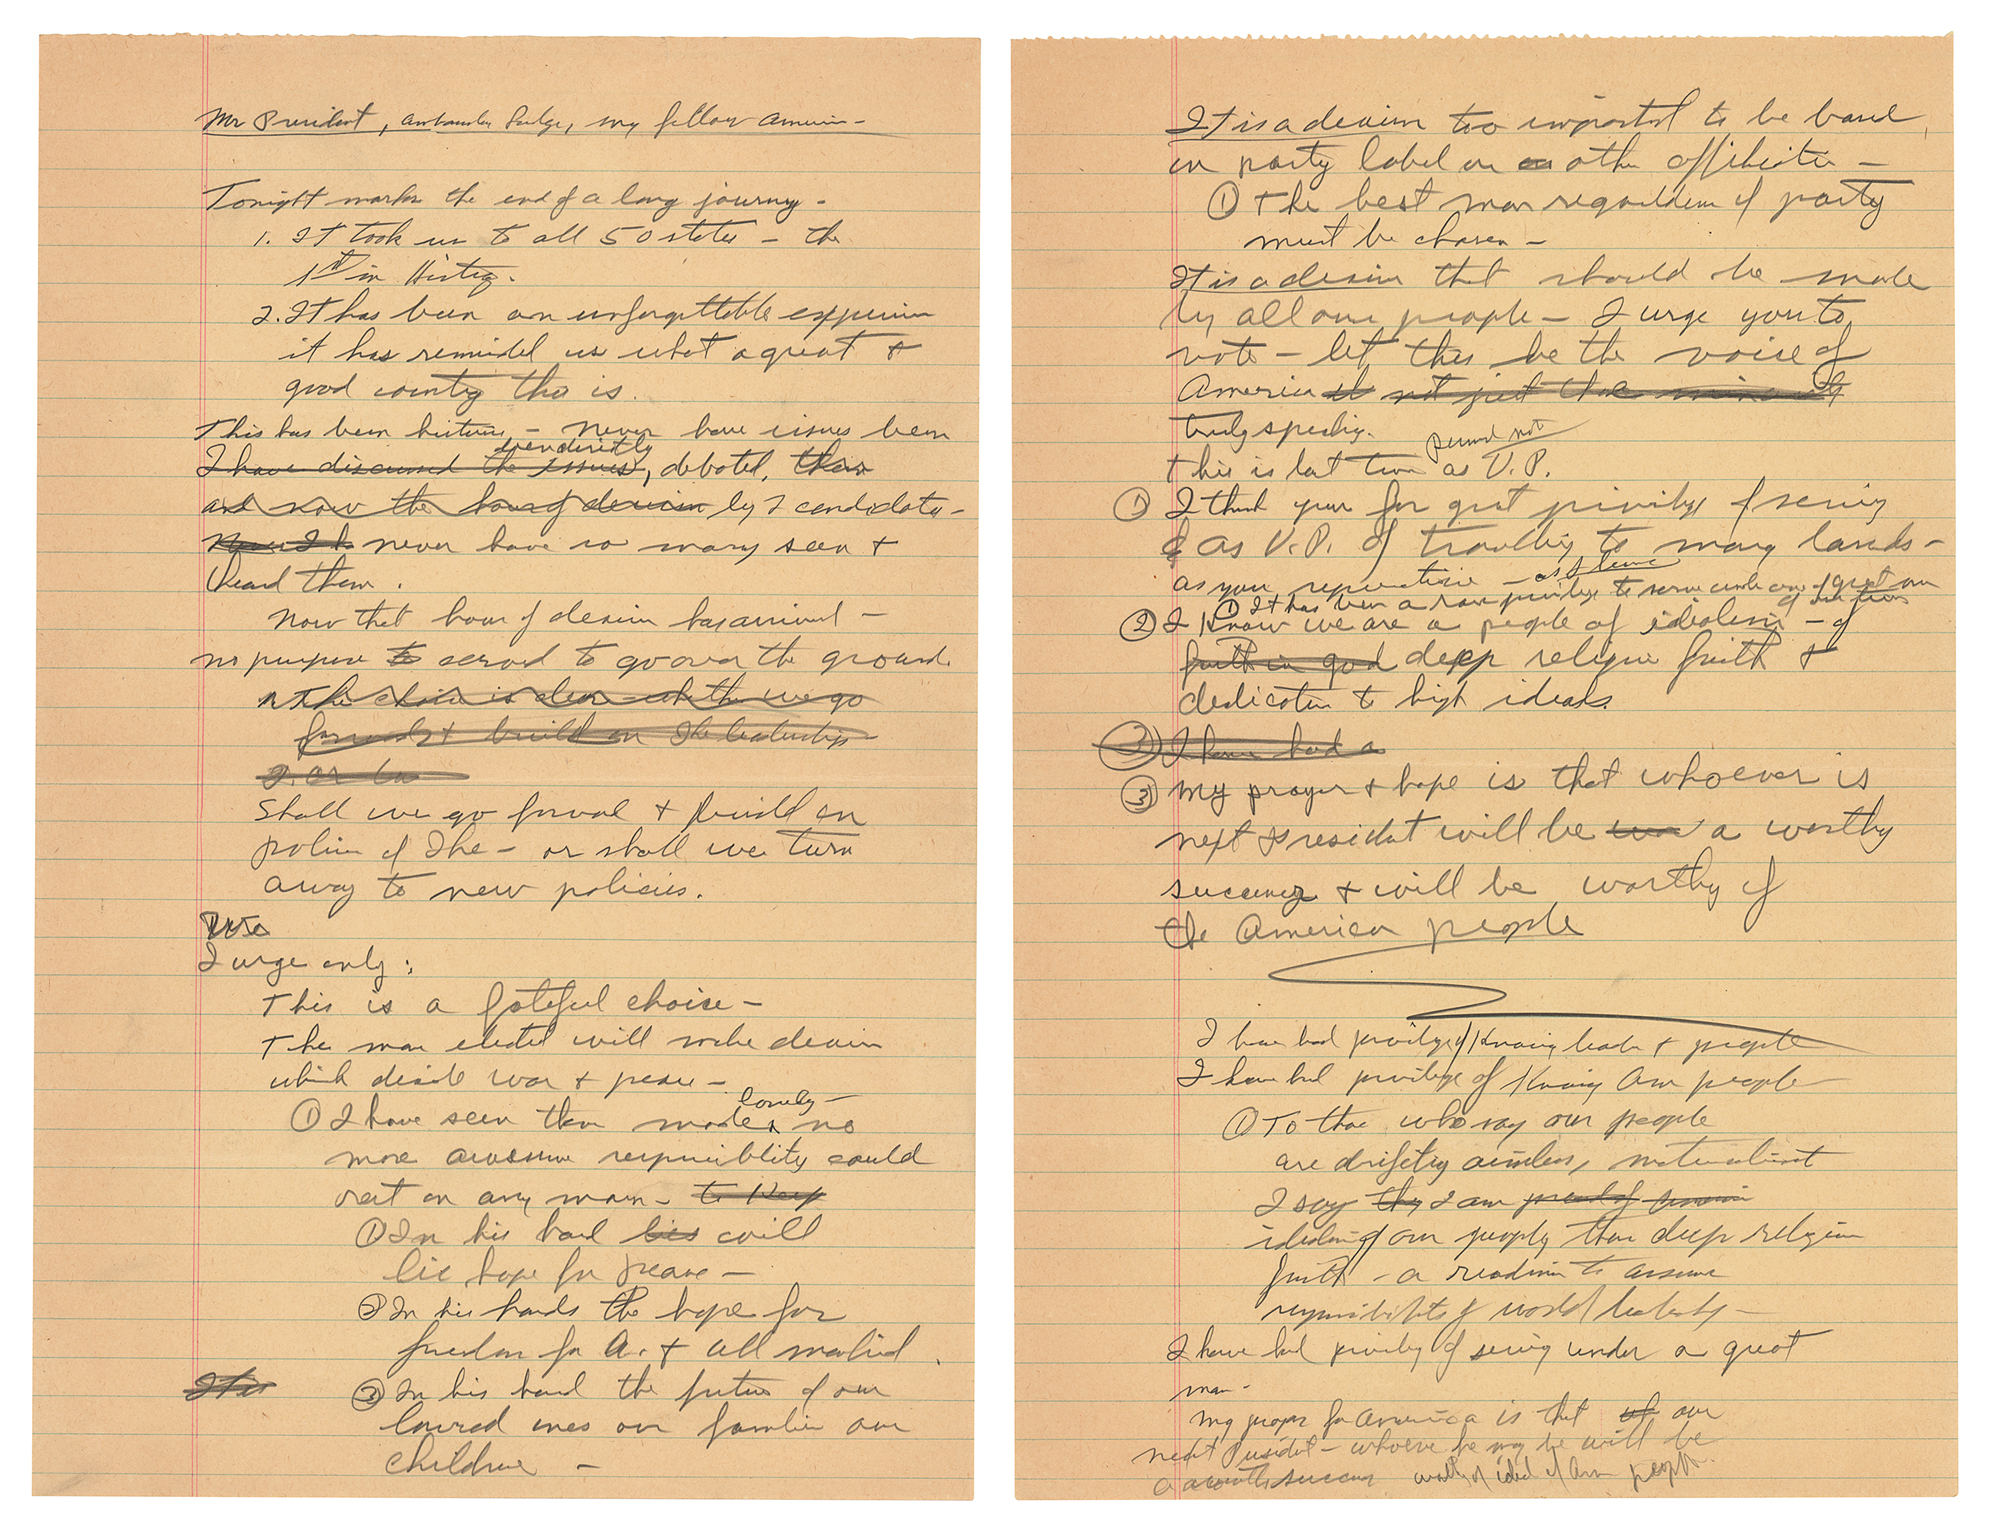 Mr President, Ambassador Lodge, my fellow American
Tonight marks the end of a long journey -
1. It took us to all 50 states - the
1st in History.
2. It has been an unforgettable experience
it has reminded us what a great +
good country this is.
This has been historic - Never have issues been
extensively
I have discussed the issues, debated,
and now the hour of decision by 2 candidates -
never have so many seen +
heard them.
Now that hour of decision has arrived -
no purpose to served to go over the ground.
The choice is clear - whether we go
forward + build on the leadership
2. or
Shall we go forward + build on
policies of Ike - or shall we turn
away to new policies.
Vote
I urge only:
This is a fateful choice -
The man elected will make decision
which decide war + peace -
lonely -
① I have seen them made no
more awesome responsibility could
rest on any man - to keep
① In his hand lies will
lie hope for peace -
② In his hands the hope for
freedom for A. + all mankind.
It is
③ In his hand the future of our
loved ones our families our
children -
It is a decision too important to be based
on party label or on other affiliation -
① The best man regardless of party
must be chosen -
It is a decision that should be made
by all our people - I urge you to
vote - let this be the voice of
America not just the minority
truly speaking.
This is last time as V.P.
① I thank you for great privilege of serving
as V.P. of travelling to many lands -
as you representative - as I leave
① It has been a rare privilege to serve under one of great men
of our time
② I know we are a people of idealism - of
faith in god deep religious faith +
dedication to high ideals.
③ I have had a
③ My prayer + hope is that whoever is
next President will be a worthy
successor + will be worthy of
the American people
I have had privilege of knowing leaders + people
I have had privilege of knowing Am people
① To those who say our people
are drifting aimless, materialist
I say they I am proud of
idealism of our people their deep religious
faith - a readiness to assume
responsibilities of world leadership -
I have had privilege of serving under a great
man -
My prayer for America is that our
next President - whoever he may be will be
a worthy successor worthy of ideals of Am people.